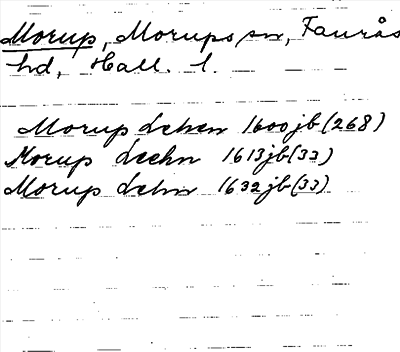 Morup, Morups sn, Faurås
hd, Hall. l.
Morup Lehen 1600 jb (268)
Morup Leehn 1613 jb (33)
Morup Lehn 1632 jb (33)